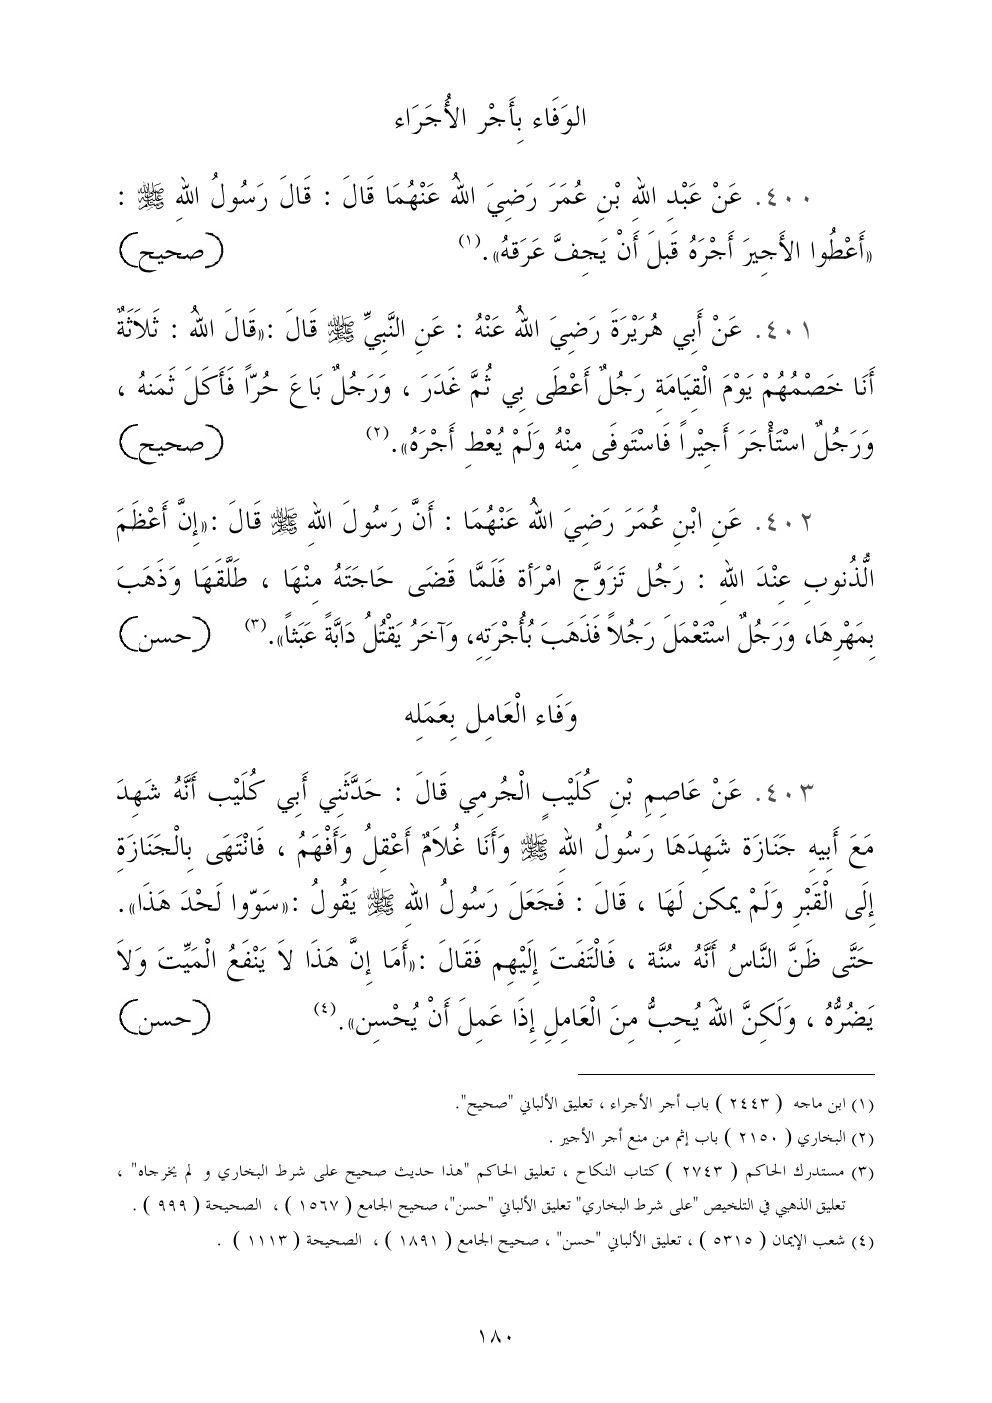 الوَفَاء بِأَجْر الأُجَرَاء
٤٠٠. عَنْ عَبْدِ اللهِ بْنِ عُمَرَ رَضِيَ اللهُ عَنْهُمَا قَالَ : قَالَ رَسُولُ اللهِ ﷺ :
«أَعْطُوا الأَجِيرَ أَجْرَهُ قَبلَ أَنْ يَجِفَّ عَرَقهُ».(١) (صحيح)
٤٠١. عَنْ أَبِي هُرَيْرَةَ رَضِيَ اللهُ عَنْهُ : عَنِ النَّبِيِّ ﷺ قَالَ :«قَالَ اللهُ : ثَلاَثَةٌ
أَنَا خَصْمُهُمْ يَوْمَ الْقِيَامَةِ رَجُلٌ أَعْطَى بِي ثُمَّ غَدَرَ ، وَرَجُلٌ بَاعَ حُرّاً فَأَكَلَ ثَمَنهُ ،
وَرَجُلٌ اسْتَأْجَرَ أَجِيْراً فَاسْتَوفَى مِنْهُ وَلَمْ يُعْطِ أَجْرَهُ».(٢) (صحيح)
٤٠٢. عَنِ ابْنِ عُمَرَ رَضِيَ اللهُ عَنْهُمَا : أَنَّ رَسُولَ اللهِ ﷺ قَالَ :«إِنَّ أَعْظَمَ
الُّذُنوبِ عِنْدَ اللهِ : رَجُل تَزَوَّج امْرَأة فَلَمَّا قَضَى حَاجَتَهُ مِنْهَا ، طَلَّقَهَا وَذَهَبَ
بِمَهْرِهَا، وَرَجُلٌ اسْتَعْمَلَ رَجُلاً فَذَهَبَ بُأُجْرَتِهِ، وَآخَرُ يَقْتُلُ دَابَّةً عَبَثاً».(٣) (حسن)
وَفَاء الْعَامِل بِعَمَلِه
٤٠٣. عَنْ عَاصِمِ بْنِ كُلَيْبٍ الْجُرمِي قَالَ : حَدَّثَنِي أَبِي كُلَيْب أَنَّهُ شَهِدَ
مَعَ أَبِيهِ جَنَازَة شَهِدَهَا رَسُولُ اللهِ ﷺ وَأَنَا غُلاَمٌ أَعْقِلُ وَأَفْهَمُ ، فَانْتَهَى بِالْجَنَازَةِ
إِلَى الْقَبْرِ وَلَمْ يمكن لَهَا ، قَالَ : فَجَعَلَ رَسُولُ اللهِ ﷺ يَقُولُ :«سَوّوا لَحْدَ هَذَا».
حَتَّى ظَنَّ النَّاسُ أَنَّهُ سُنَّة ، فَالْتَفَتَ إِلَيْهِم فَقَالَ :«أَمَا إِنَّ هَذَا لاَ يَنْفَعُ الْمَيِّتَ وَلاَ
يَضُرُّهُ ، وَلَكِنَّ اللهَ يُحِبُّ مِنَ الْعَامِلِ إِذَا عَمِلَ أَنْ يُحْسِن».(٤) (حسن)
(١) ابن ماجه ( ٢٤٤٣ ) باب أجر الأجراء ، تعليق الألباني "صحيح".
(٢) البخاري ( ٢١٥٠ ) باب إثم من منع أجر الأجير .
(٣) مستدرك الحاكم ( ٢٧٤٣ ) كتاب النكاح ، تعليق الحاكم "هذا حديث صحيح على شرط البخاري و لم يخرجاه" ،
تعليق الذهبي في التلخيص "على شرط البخاري" تعليق الألباني "حسن"، صحيح الجامع ( ١٥٦٧ ) ، الصحيحة ( ٩٩٩ ) .
(٤) شعب الإيمان ( ٥٣١٥ ) ، تعليق الألباني "حسن" ، صحيح الجامع ( ١٨٩١ ) ، الصحيحة ( ١١١٣ ) .
١٨٠